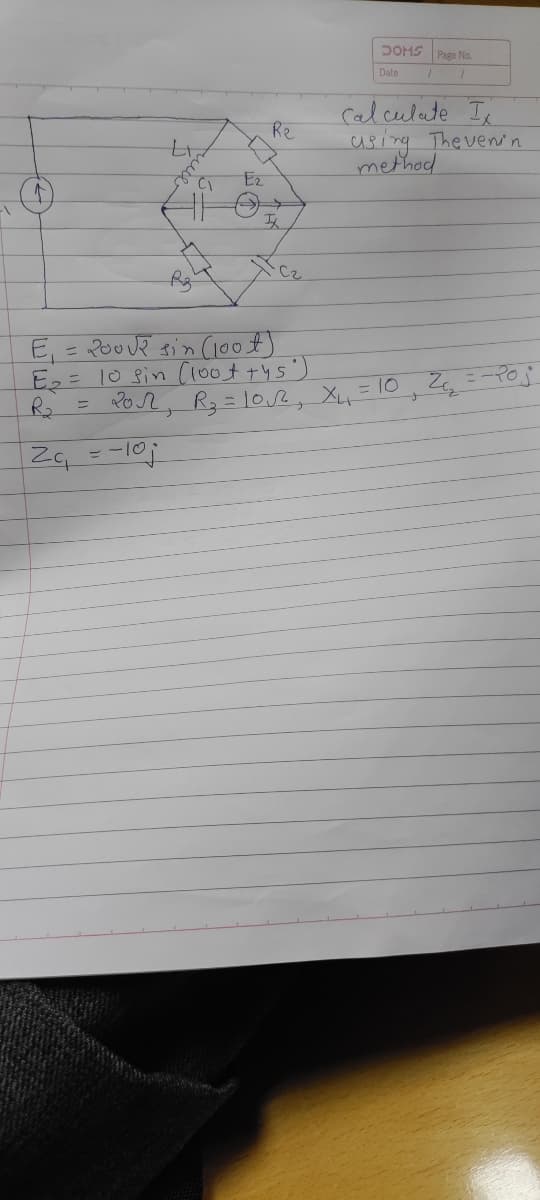 DOMS Page No.
Date / /
Calculate Ix
using Thevenin
method
R2
L1
C1 E2
Ix
R3 C2
E1 = 200√2 sin (100t)
E2 = 10 sin (100t +45°)
R2 = 20Ω, R3 = 10Ω, XL1 = 10 , ZC2 = -20j
ZC1 = -10j